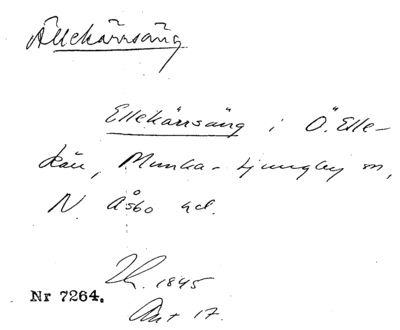 Ällekärrsäng
Ellekärrsäng i Ö. Elle-
kärr, Munka-Ljungby sn,
N. Åsbo hd.
1845
Nr 7264. Akt 17.